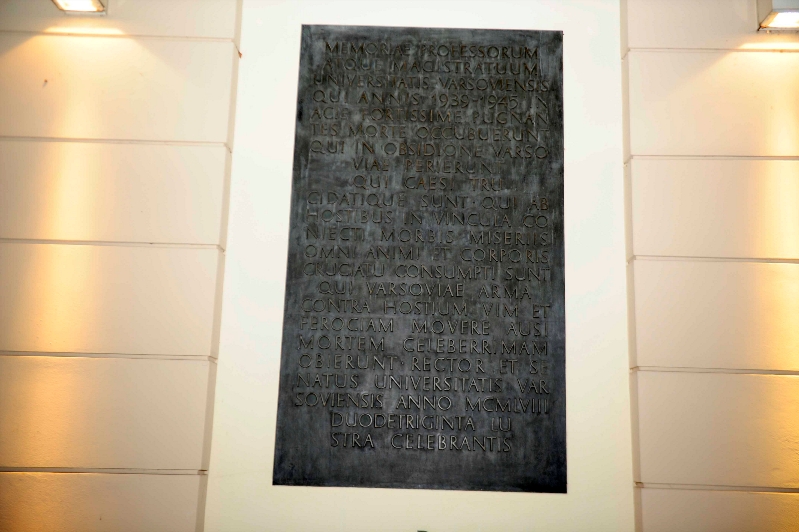 MEMORIAE PROFESSORUM
ATQUE MAGISTRATUUM
UNIVERSITATIS VARSOVIENSIS
QUI ANNIS 1939-1945 IN
ACIE FORTISSIME PUGNAN
TES MORTE OCCUBUERUNT
QUI IN OBSIDIONE VARSO
VIAE PERIERUNT
QUI CAESI TRU
CIDATIQUE SUNT · QUI AB
HOSTIBUS IN VINCULA CO
NIECTI MORBIS MISERIIS
OMNI ANIMI ET CORPORIS
CRUCIATU CONSUMPTI SUNT
QUI VARSOVIAE ARMA
CONTRA HOSTIUM VIM ET
FEROCIAM MOVERE AUSI
MORTEM CELEBERRIMAM
OBIERUNT · RECTOR ET SE
NATUS UNIVERSITATIS VAR
SOVIENSIS ANNO MCMLVIII
DUODETRIGINTA LU
STRA CELEBRANTIS